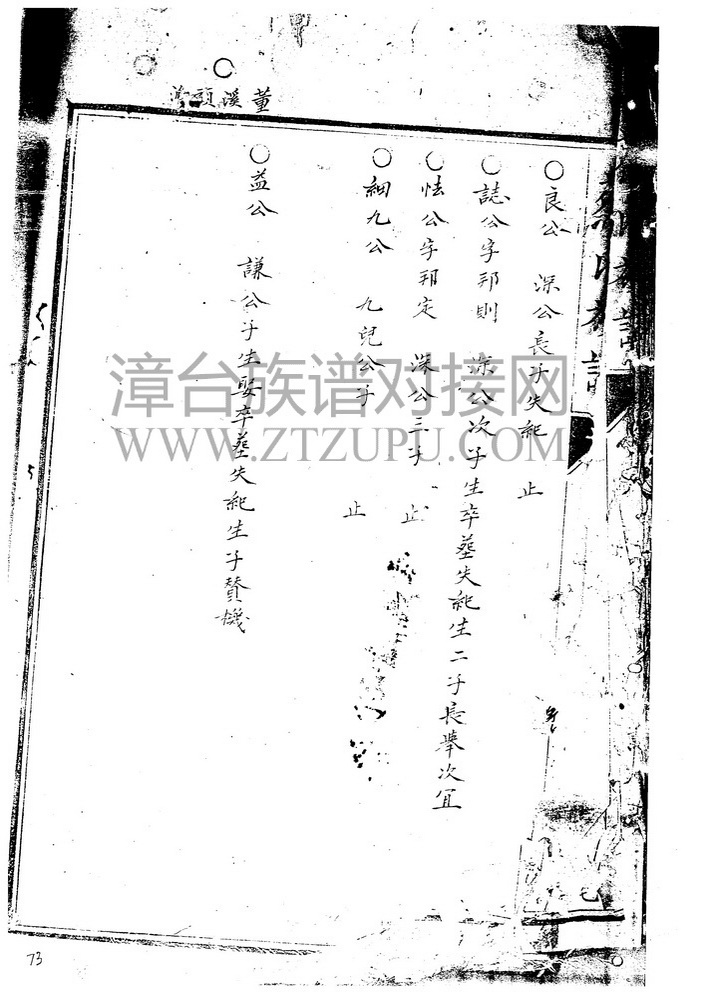 董溪頭湾
良公 深公長子失紀 止
誌公字邦則 深公次子生卒墓失紀生二子長舉次宜
怯公字邦定 深公三子 止
細九公 九兒公子 止
益公 謙公子生娶卒墓失紀生子贊機
漳台族谱对接网
WWW.ZTZUPU.COM
73